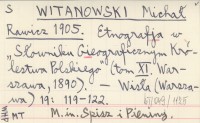 S WITANOWSKI Michał
Rawicz 1905. Etnografja w
"Słowniku Geograficznym Kró-
lestwa Polskiego" (tom XI War-
szawa, 1890). — Wisła (Warsza-
wa) 19: 119-122.
MT M. in. Spisz i Pieniny.